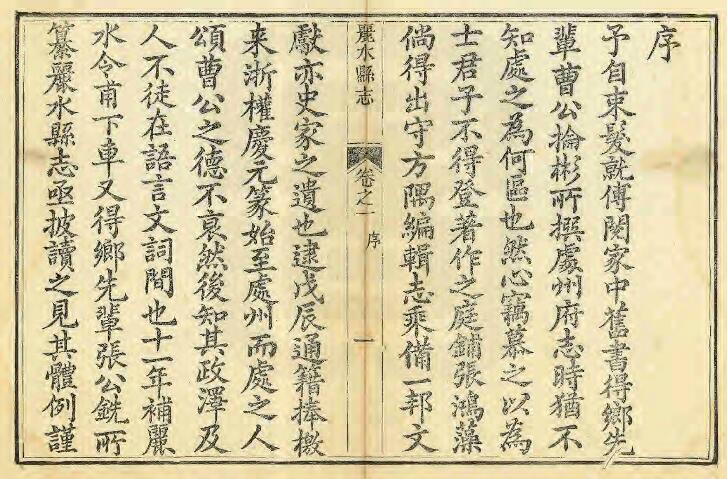 序
予自束髮就傅閱家中舊書得鄉先
輩曹公掄彬所撰處州府志時猶不
知處之為何區也然心竊慕之以為
士君子不得登著作之庭鋪張鴻藻
倘得出守方隅編輯志乘備一邦文
麗水縣志 卷之一 序 一
獻亦史家之遺也逮戊辰通籍捧檄
来浙權慶元篆始至處州而處之人
頌曹公之德不衰然後知其政澤及
人不徒在語言文詞間也十一年補麗
水令甫下車又得鄉先輩張公銑所
纂麗水縣志亟披讀之見其體例謹